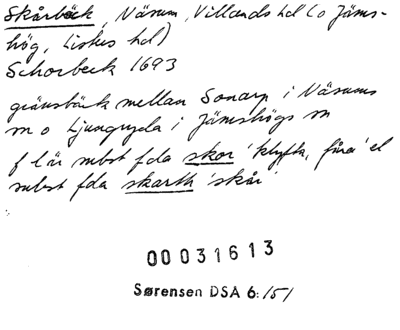 Skårbäck, Näsum, Villands hd (o Jäms-
hög, Listers hd)
Schorbeck 1693
gränsbäck mellan Sonarp i Näsums
sn o Ljungryda i Jämshögs sn
f l är subst fda skor 'klyfta, fåra' el
subst fda skarth 'skår'
00031613
Sørensen DSA 6:151